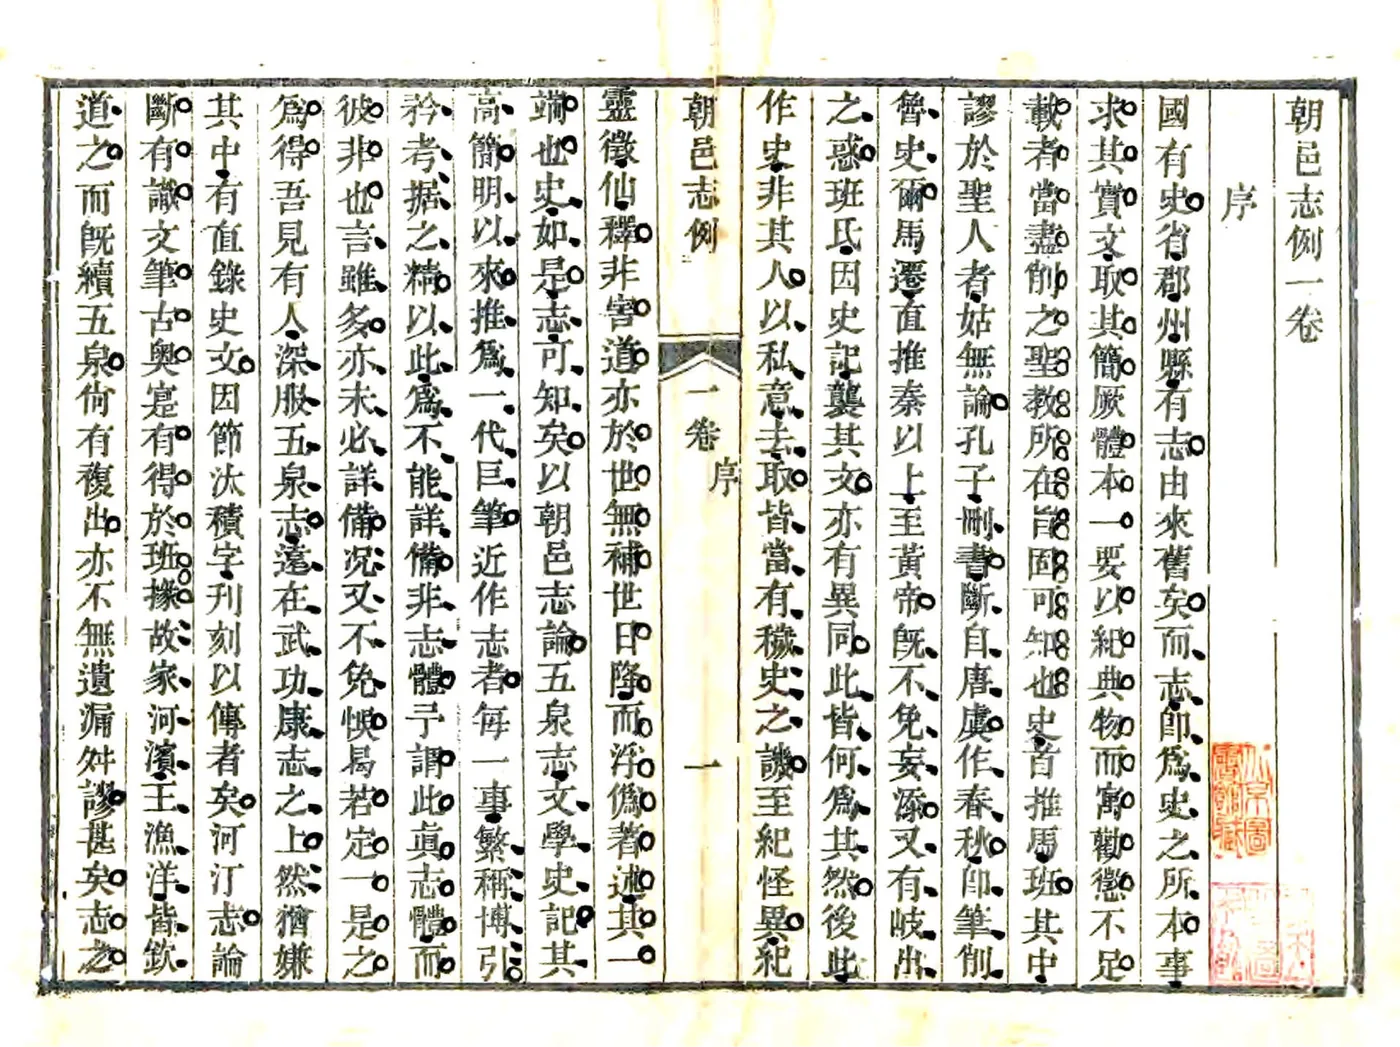 朝邑志例一卷
序
國有史省郡州縣有志由來舊矣而志卽為史之所本事
求其實文取其簡厥體本一要以紀典物而寓勸懲不足
載者當盡削之聖教所在旨固可知也史首推馬班其中
謬於聖人者姑無論孔子刪書斷自唐虞作春秋卽筆削
魯史爾馬遷直推秦以上至黃帝旣不免妄添又有岐出
之惑班氏因史記襲其文亦有異同此皆何為其然後此
作史非其人以私意去取皆當有穢史之譏至紀怪異紀
朝邑志例
一卷
序
一
靈徵仙釋非害道亦於世無補世日降而浮僞著述其一
端也史如是志可知矣以朝邑志論五泉志文學史記其
高簡明以來推為一代巨筆近作志者每一事繁稱博引
矜考据之精以此為不能詳備非志體予謂此眞志體而
彼非也言雖多亦未必詳備况又不免悞曷若定一是之
為得吾見有人深服五泉志遠在武功康志之上然猶嫌
其中有直錄史文因節汰積字刊刻以傳者矣河汀志論
斷有識文筆古奧寔有得於班掾故家河濱王漁洋皆欽
道之而旣續五泉尙有複出亦不無遺漏舛謬甚矣志之